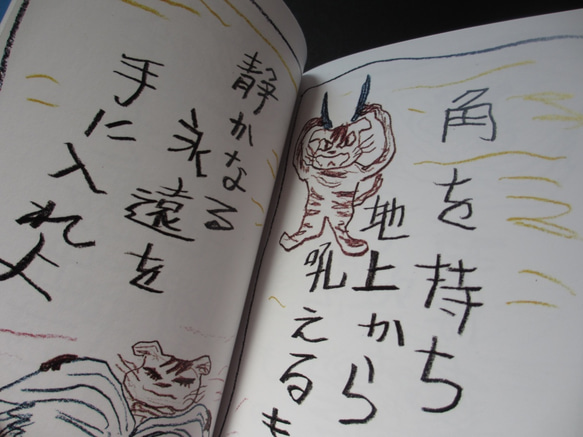 角を持ち
地上から
吼えるも
静かなる
永遠を
手に入れよ